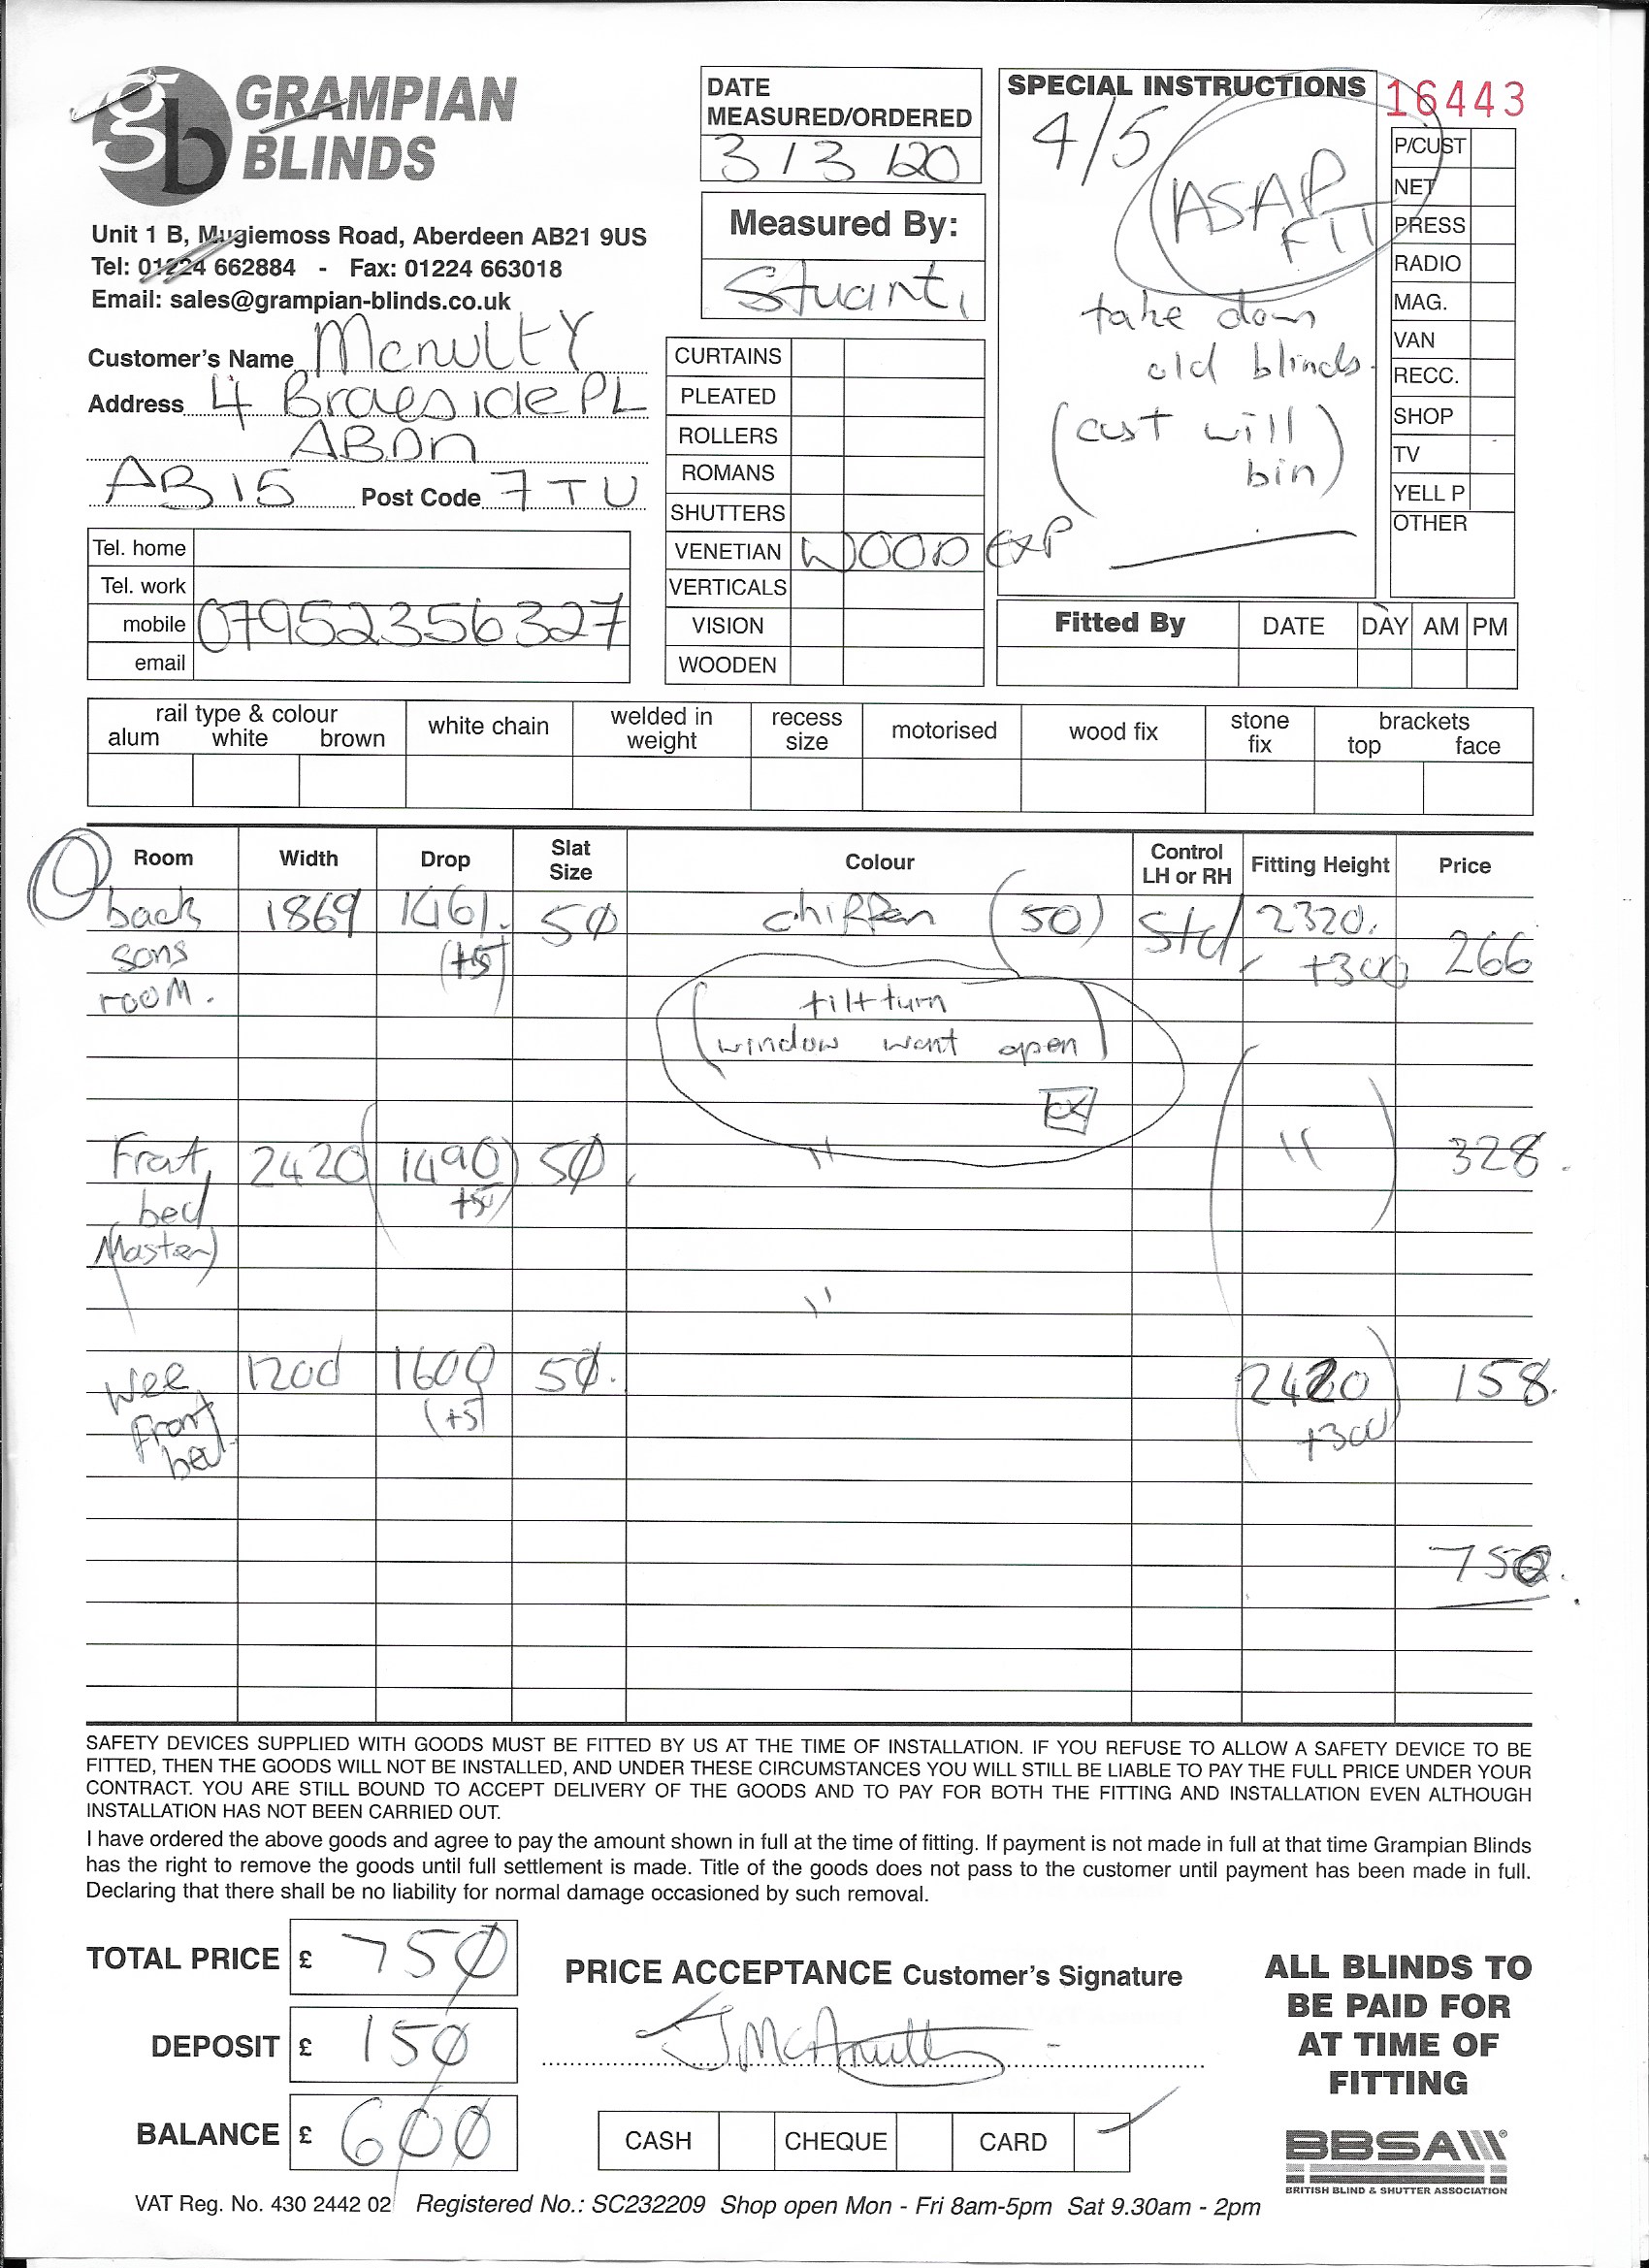 gb GRAMPIAN
BLINDS
Unit 1 B, Mugiemoss Road, Aberdeen AB21 9US
Tel: 01224 662884 - Fax: 01224 663018
Email: sales@grampian-blinds.co.uk
Customer's Name McnultY
Address 4 Braeside PL
ABDn
AB15 Post Code 7TU
Tel. home
Tel. work
mobile 07952356327
email
DATE
MEASURED/ORDERED
3/3/20
Measured By:
Stuart
CURTAINS
PLEATED
ROLLERS
ROMANS
SHUTTERS
VENETIAN WOOD EXP
VERTICALS
VISION
WOODEN
SPECIAL INSTRUCTIONS
4/5 ASAP
FIT
take down
old blinds.
(cust will
bin)
16443
P/CUST
NET
PRESS
RADIO
MAG.
VAN
RECC.
SHOP
TV
YELL P
OTHER
Fitted By DATE DAY AM PM
rail type & colour
alum white brown
white chain
welded in
weight
recess
size
motorised
wood fix
stone
fix
brackets
top face
Room Width Drop Slat Size Colour Control LH or RH Fitting Height Price
back 1869 1461. 50 chiffon (50) Std 2320. 266
sons (+5) +300
room.
(tilt turn
window want open)
Front 2420 1490 50 " " 328.
bed +50
(Master)
"
wee 1200 1600 50. 2420 158.
front (+5) +300
bed.
750.
SAFETY DEVICES SUPPLIED WITH GOODS MUST BE FITTED BY US AT THE TIME OF INSTALLATION. IF YOU REFUSE TO ALLOW A SAFETY DEVICE TO BE
FITTED, THEN THE GOODS WILL NOT BE INSTALLED, AND UNDER THESE CIRCUMSTANCES YOU WILL STILL BE LIABLE TO PAY THE FULL PRICE UNDER YOUR
CONTRACT. YOU ARE STILL BOUND TO ACCEPT DELIVERY OF THE GOODS AND TO PAY FOR BOTH THE FITTING AND INSTALLATION EVEN ALTHOUGH
INSTALLATION HAS NOT BEEN CARRIED OUT.
I have ordered the above goods and agree to pay the amount shown in full at the time of fitting. If payment is not made in full at that time Grampian Blinds
has the right to remove the goods until full settlement is made. Title of the goods does not pass to the customer until payment has been made in full.
Declaring that there shall be no liability for normal damage occasioned by such removal.
TOTAL PRICE £ 750
DEPOSIT £ 150
BALANCE £ 600
PRICE ACCEPTANCE Customer's Signature
CASH CHEQUE CARD
ALL BLINDS TO
BE PAID FOR
AT TIME OF
FITTING
BBSA
BRITISH BLIND & SHUTTER ASSOCIATION
VAT Reg. No. 430 2442 02 Registered No.: SC232209 Shop open Mon - Fri 8am-5pm Sat 9.30am - 2pm